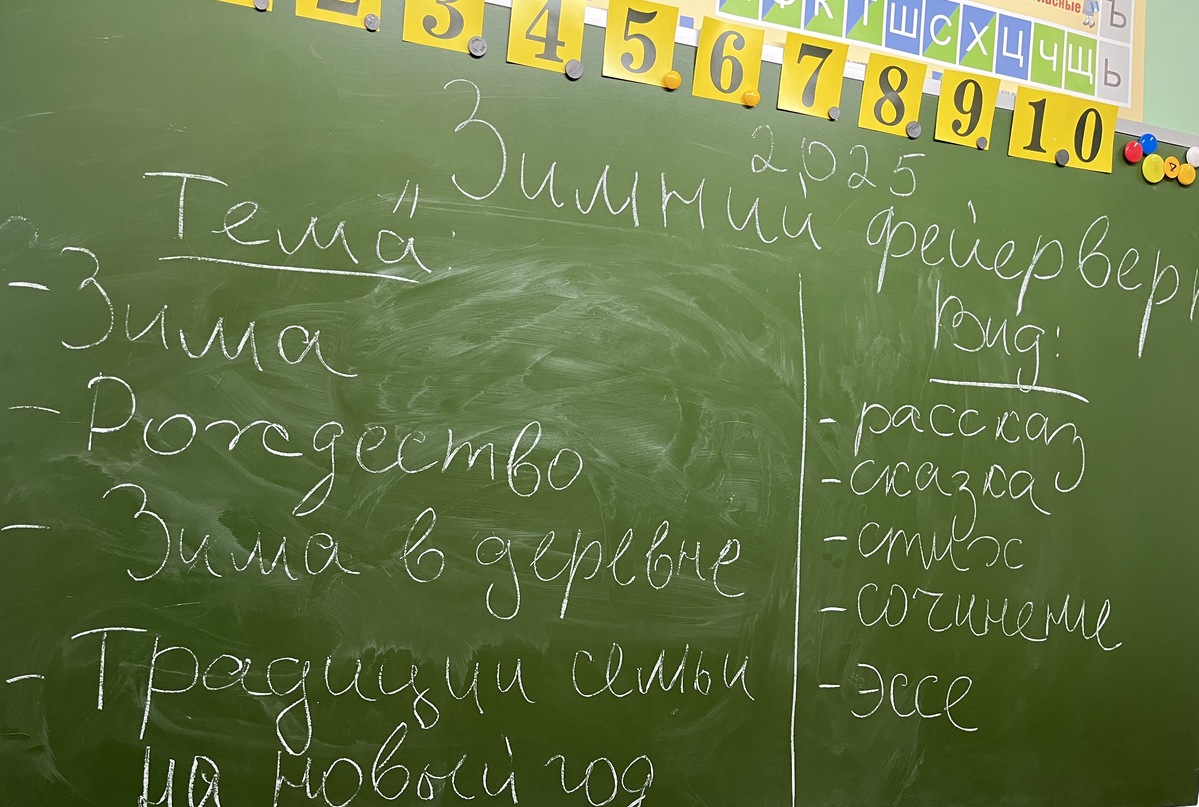 2. 3. 4. 5. 6. 7. 8. 9. 10.
Ф К Т Ш С Х Ц Ч Щ Ъ Ь
2025
Зимний фейервер
Тема":
- Зима
- Рождество
- Зима в деревне
- Традиции семьи
на новый год
Вид:
- рассказ
- сказка
- стих
- сочинение
- эссе